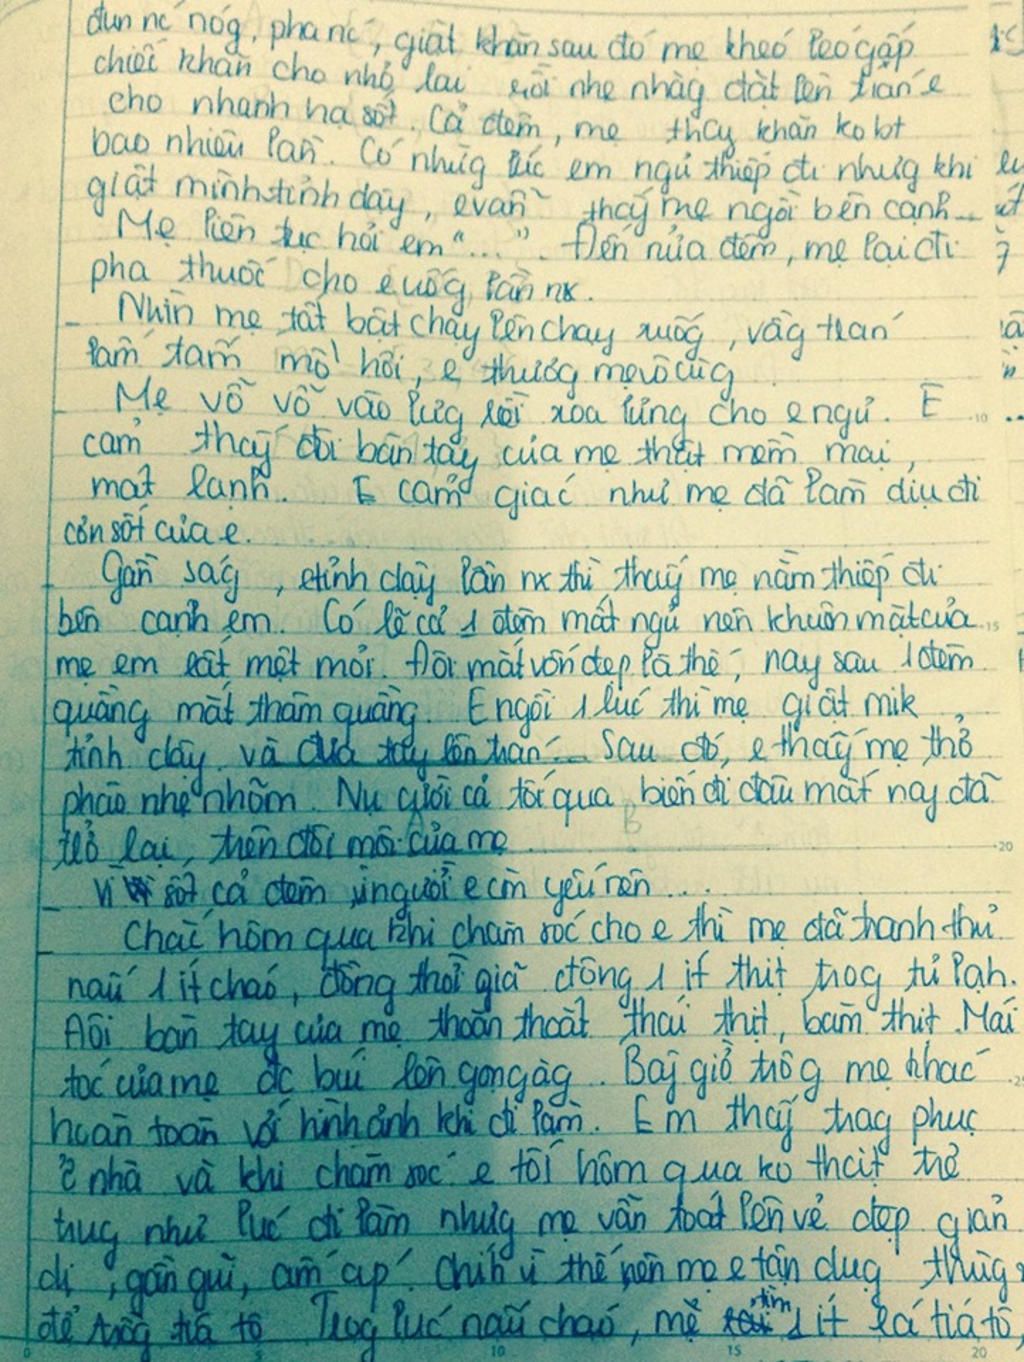 đun nc nóg, pha nc, giặt khăn sau đó mẹ khéo léo gấp
chiếc khăn cho nhỏ lại rồi nhẹ nhàg đặt lên trán e
cho nhanh hạ sốt. Cả đêm, mẹ thay khăn ko bt
bao nhiêu lần. Có nhữg lúc em ngủ thiếp đi nhưg khi
giật mình tỉnh dậy, e vẫn thấy mẹ ngồi bên cạnh...
Mẹ liên tục hỏi em "...". Đến nửa đêm, mẹ lại đi
pha thuốc cho e uốg lần nx.
- Nhìn mẹ tất bật chạy lên chạy xuốg, vầg trán
lấm tấm mồ hôi, e thươg mẹ vô cùg
- Mẹ vỗ vỗ vào lưg rồi xoa lưng cho e ngủ. E
cảm thấy đôi bàn tay của mẹ thật mềm mại,
mát lạnh. E cảm giác như mẹ đã làm dịu đi
cơn sốt của e.
- Gần ság, e tỉnh dậy lần nx thì thấy mẹ nằm thiếp đi
bên cạnh em. Có lẽ cả 1 đêm mất ngủ nên khuôn mặt của
mẹ em rất mệt mỏi. Đôi mắt vốn đẹp là thế, nay sau 1 đêm
quầng mắt thâm quầng. E ngồi 1 lúc thì mẹ giật mik
tỉnh dậy và đưa tay lên trán... Sau đó, e thấy mẹ thở
phào nhẹ nhõm. Nụ cười cả tối qua biến đi đâu mất nay đã
trở lại, trên đôi môi của mẹ
- Vì sốt cả đêm, người e còn yếu nên ...
- Chắc hôm qua khi chăm sóc cho e thì mẹ đã tranh thủ
nấu 1 ít cháo, đồng thời giã đông 1 ít thịt trog tủ lạh.
Đôi bàn tay của mẹ thoăn thoắt thái thịt, băm thịt. Mái
tóc của mẹ đc búi lên gọn gàg. Bây giờ trôg mẹ khác
hoàn toàn với hình ảnh khi đi làm. Em thấy trag phục
ở nhà và khi chăm sóc e tối hôm qua ko thật trẻ
trug như lúc đi làm nhưg mẹ vẫn toát lên vẻ đẹp giản
dị, gần gũi, ấm áp. Chíh vì thế nên mẹ e tận dụg thùg
để trồg tía tô Trog lúc nấu cháo, mẹ tìm 1 ít lá tía tô,